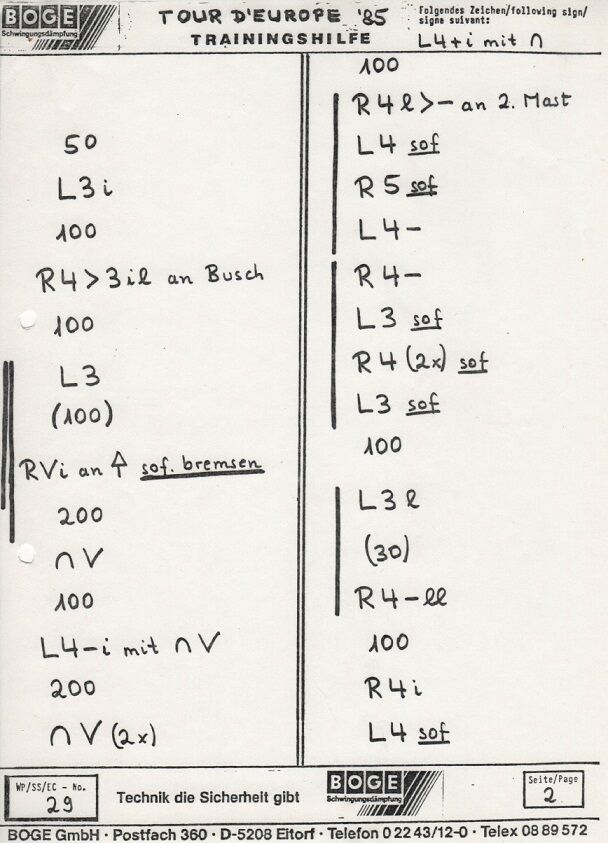 BOGE
Schwingungsdämpfung
TOUR D'EUROPE '85
TRAININGSHILFE
Folgendes Zeichen/following sign/
signe suivant:
L4+i mit ∩
50
L3i
100
R4>3il an Busch
100
L3
(100)
RVi an sof. bremsen
200
∩V
100
L4-i mit ∩V
200
∩V (2x)
100
R4l>- an 2. Mast
L4 sof
R5 sof
L4-
R4-
L3 sof
R4 (2x) sof
L3 sof
100
L3l
(30)
R4-ll
100
R4i
L4 sof
WP/SS/EC - No.
29
Technik die Sicherheit gibt
BOGE
Schwingungsdämpfung
Seite/Page
2
BOGE GmbH · Postfach 360 · D-5208 Eitorf · Telefon 0 22 43/12-0 · Telex 08 89 572